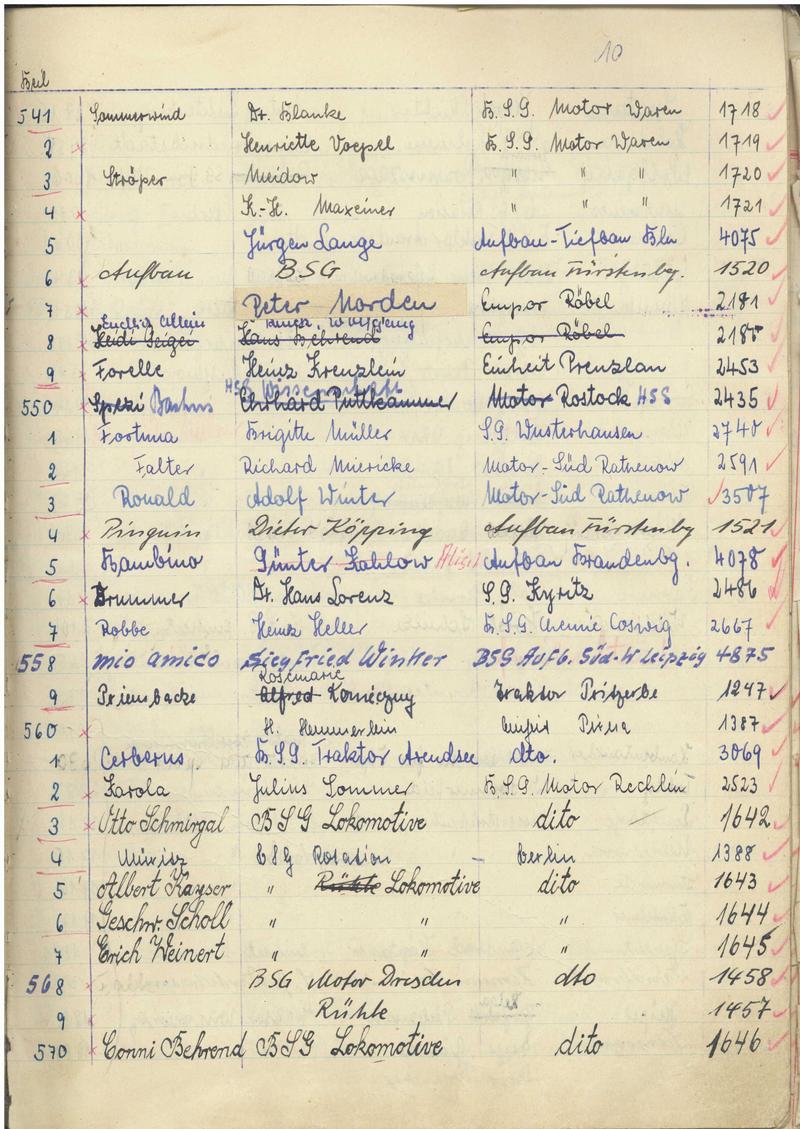 10
Beil
541 Sommerwind Dr. Blanke B.S.G. Motor Waren 1718
2 Henriette Voepel B.S.G. Motor Waren 1719
3 Ströper Meidow " " " 1720
4 K.-H. Maxeiner " " " 1721
5 Jürgen Lange Aufbau-Tiefbau Bln 4075
6 Aufbau BSG Aufbau Fürstenbg. 1520
7 Peter Norden Empor Röbel 2181
Wolfgang
8 Heidi Geiger Hans Behrend Empor Röbel 218
9 Forelle Heinz Krenzlein Einheit Prenzlau 2453
HSG Wissenschaft
550 Spezi Ehrhard Puttkammer Motor Rostock HSG 2435
1 Fortuna Brigitte Müller S.G. Wusterhausen 2740
2 Falter Richard Miericke Motor-Süd Rathenow 2591
3 Ronald Adolf Winter Motor-Süd Rathenow 3507
4 Pinguin Dieter Köpping Aufbau Fürstenbg 1521
5 Bambino Günter Kahlow Aufbau Brandenbg. 4078
6 Brummer Dr. Hans Lorenz S.G. Kyritz 2486
7 Robbe Heinz Heller B.S.G. Chemie Coswig 2667
558 mio amico Siegfried Winkler BSG Aufb. Süd-W Leipzig 4875
Rosemarie
9 Priembacke Alfred Konieczny Traktor Pritzerbe 1247
560 H. Hemmerlein Empor Pirna 1387
1 Cerberus B.S.G. Traktor Arendsee dto. 3069
2 Karola Julius Sommer B.S.G. Motor Rechlin 2523
3 Otto Schmirgal BSG Lokomotive dito 1642
4 Müritz BSG Rotation – Berlin 1388
5 Albert Kayser " Rühle Lokomotive dito 1643
6 Geschw. Scholl " " " 1644
7 Erich Weinert " " " 1645
568 BSG Motor Dresden dto 1458
9 Rühle 1457
570 Conni Behrend BSG Lokomotive dito 1646